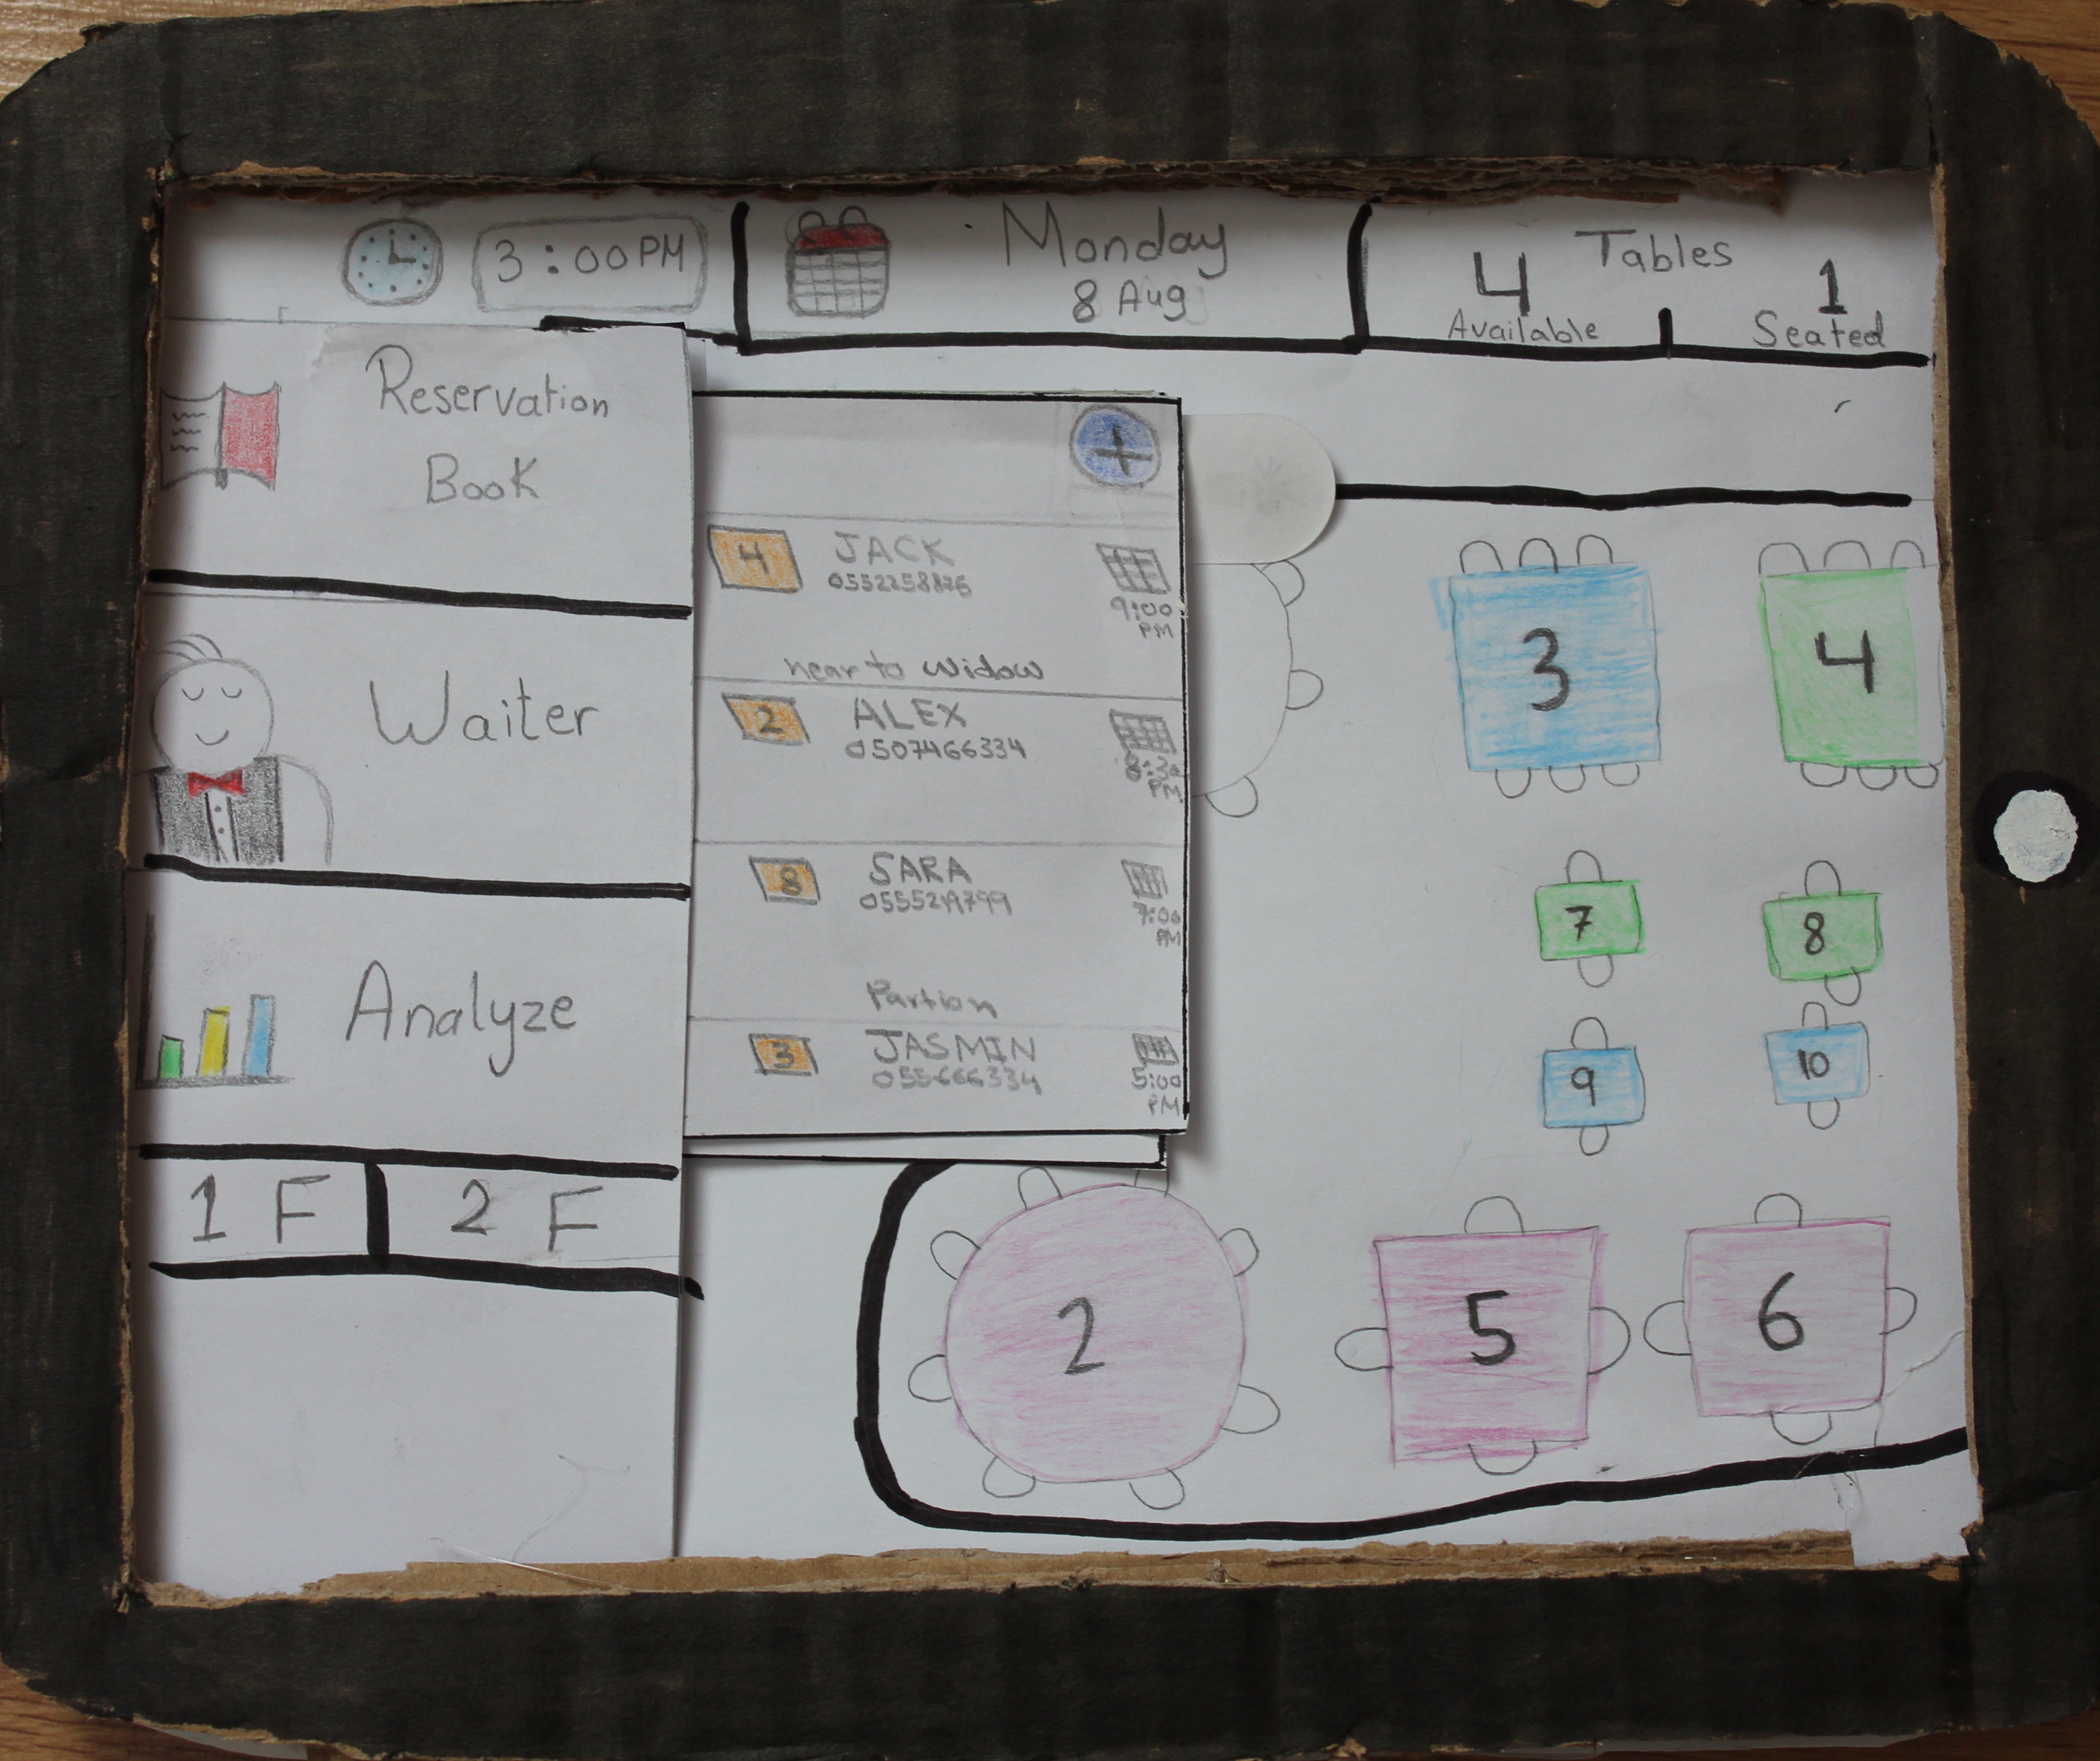 3:00PM
Monday
8 Aug
Tables
4
1
Available
Seated
Reservation
Book
Waiter
Analyze
1 F
2 F
+
4
JACK
9:00
PM
near to widow
2
ALEX
0507466334
8:30
PM
8
SARA
7:00
PM
Partion
3
JASMIN
055666334
5:00
PM
3
4
7
8
9
10
2
5
6